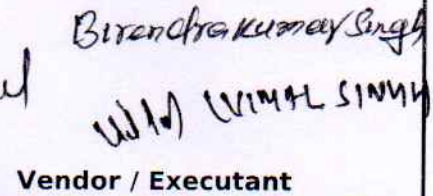 Birendra Kumar Singh
(VIMAL SINGH
Vendor / Executant